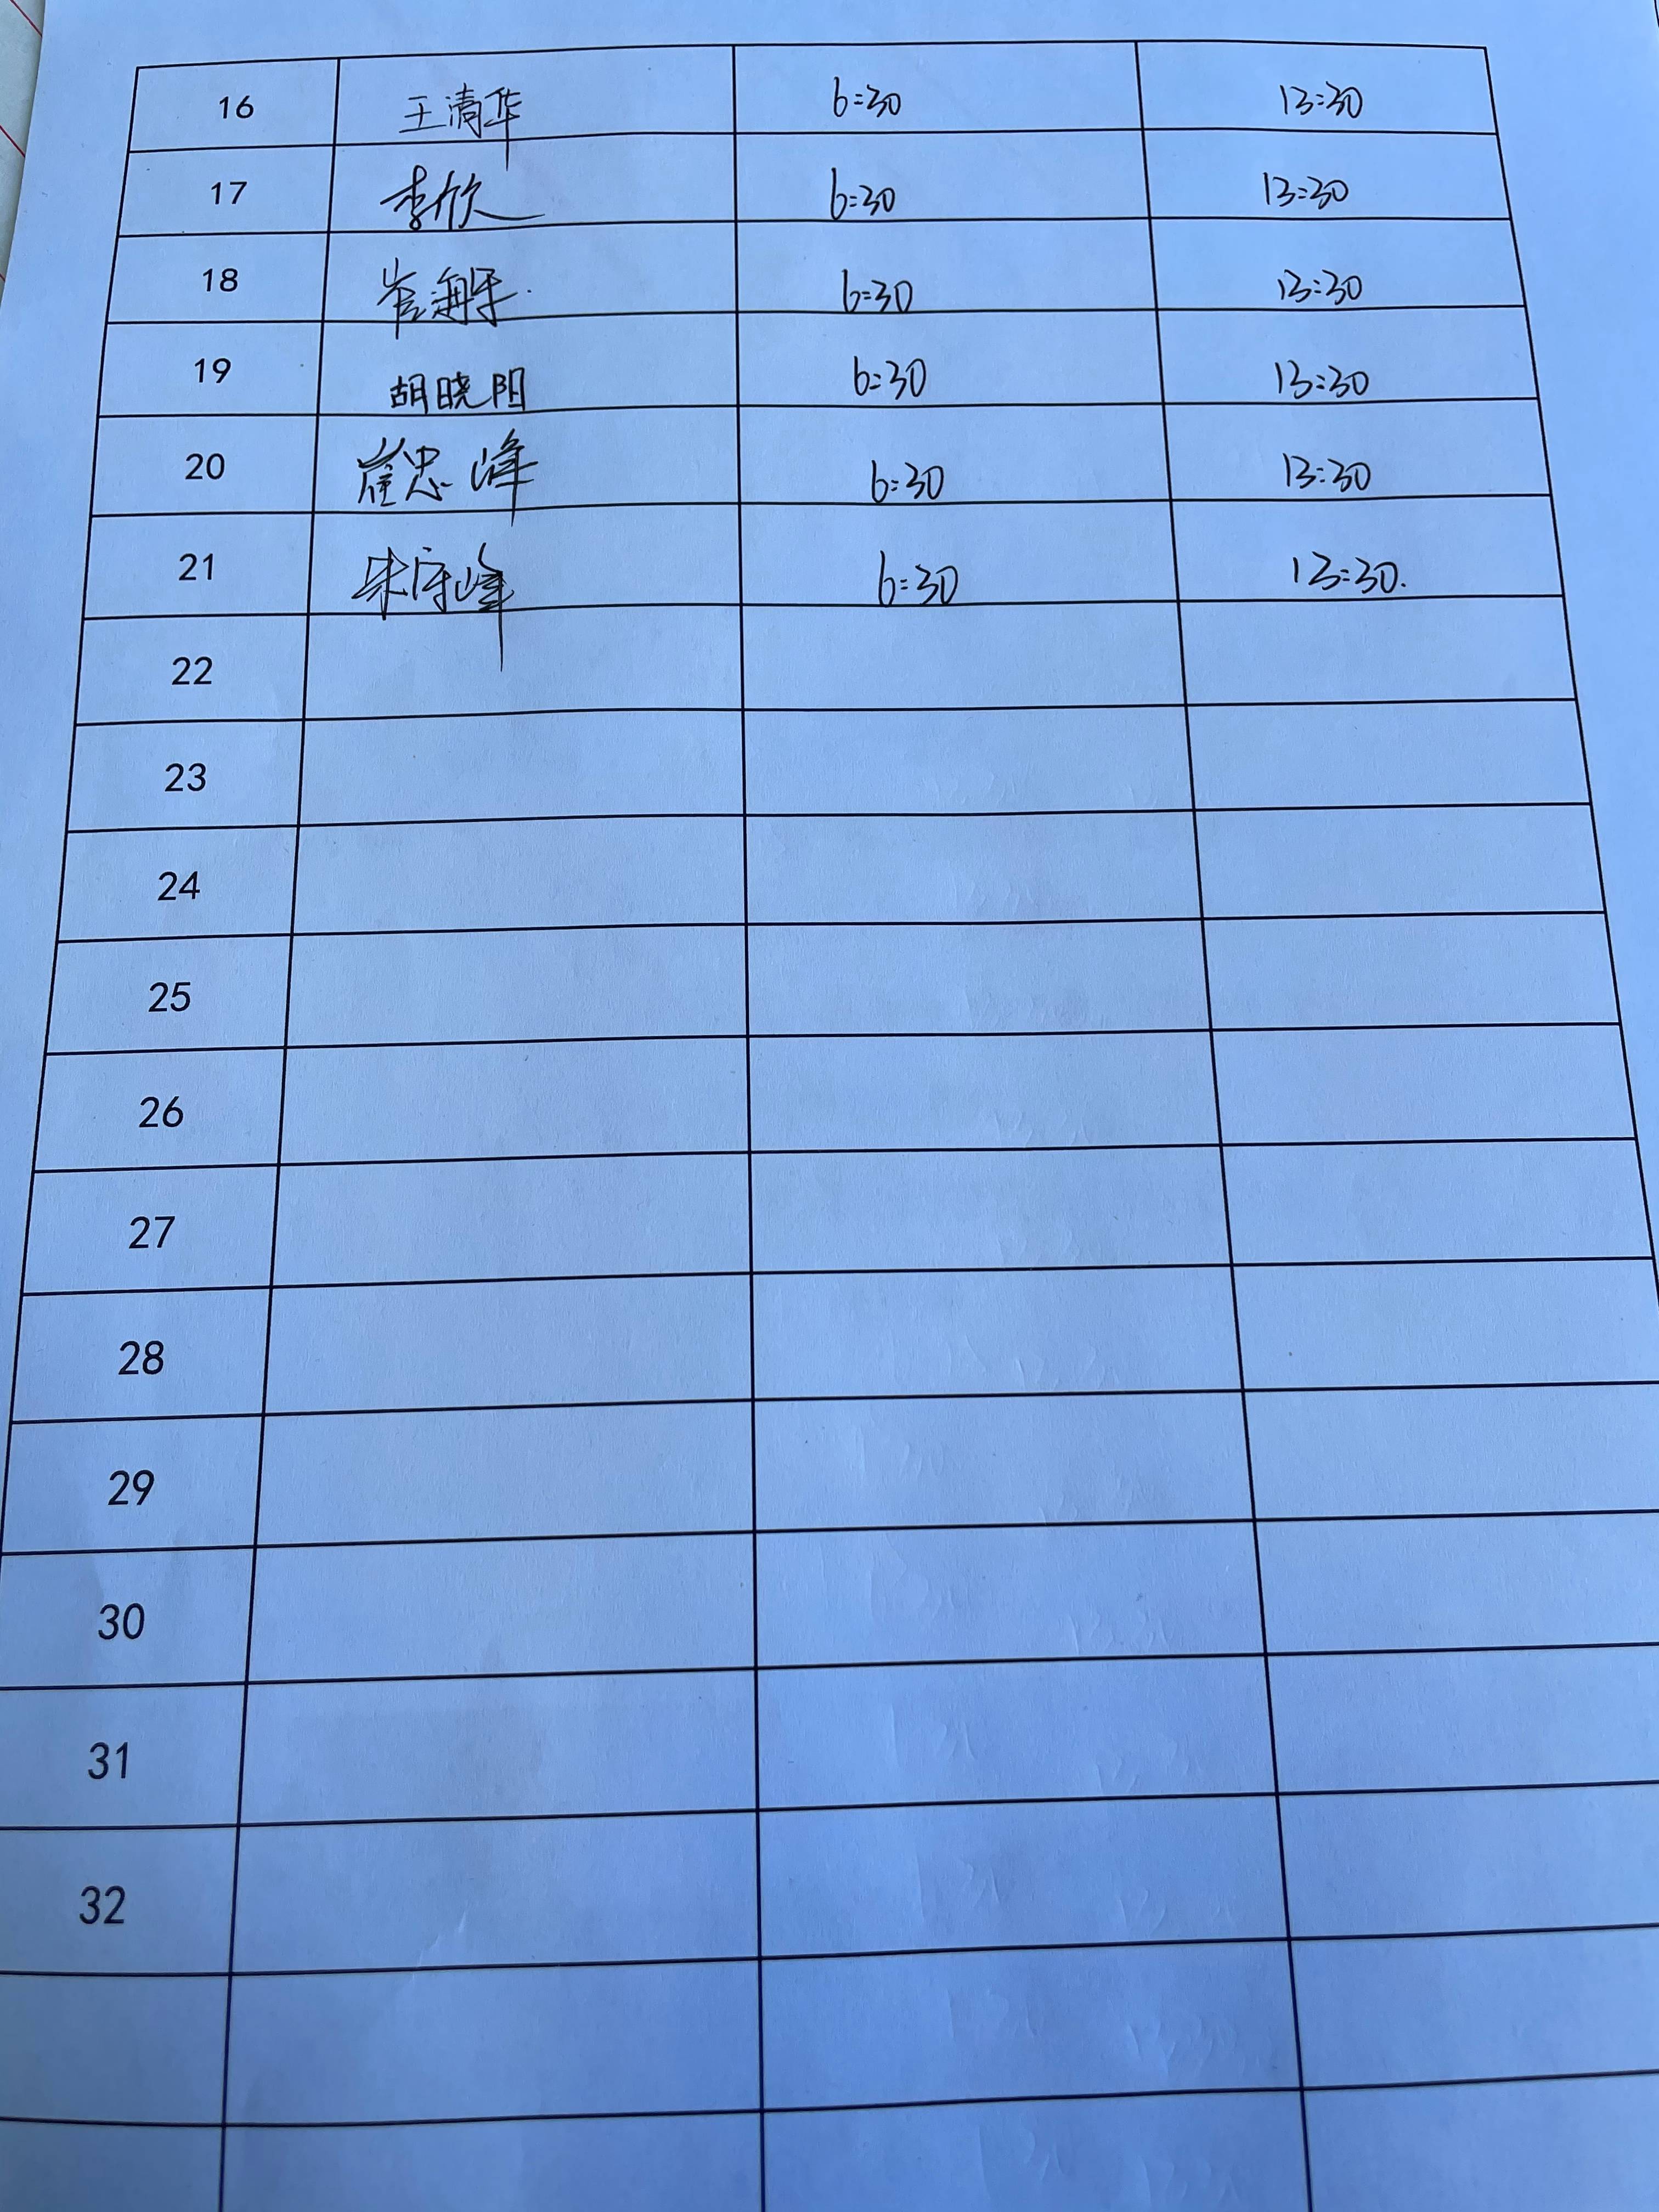 16 王清华 6:30 13:30
17 李欣 6:30 13:30
18 崔海军 6:30 13:30
19 胡晓阳 6:30 13:30
20 崔忠峰 6:30 13:30
21 宋守峰 6:30 13:30.
22
23
24
25
26
27
28
29
30
31
32